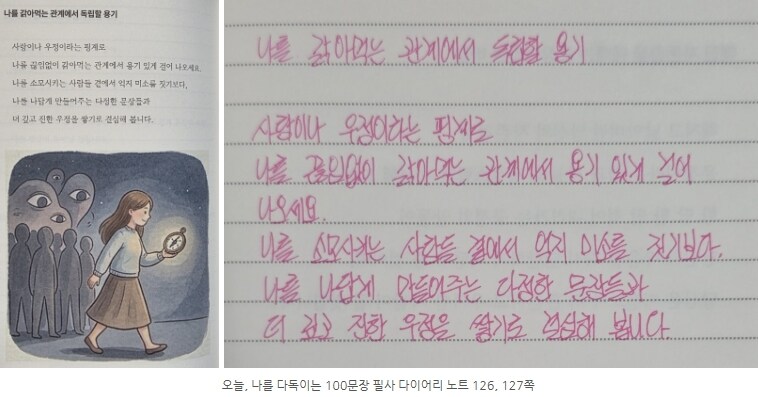 나를 갉아먹는 관계에서 독립할 용기
사랑이나 우정이라는 핑계로
나를 끊임없이 갉아먹는 관계에서 용기 있게 걸어 나오세요.
나를 소모시키는 사람들 곁에서 억지 미소를 짓기보다,
나를 나답게 만들어주는 다정한 문장들과
더 깊고 진한 우정을 쌓기로 결심해 봅니다.
나를 갉아먹는 관계에서 독립할 용기
사랑이나 우정이라는 핑계로
나를 끊임없이 갉아먹는 관계에서 용기 있게 걸어
나오세요.
나를 소모시키는 사람들 곁에서 억지 미소를 짓기보다.
나를 나답게 만들어주는 다정한 문장들과
더 깊고 진한 우정을 쌓기로 결심해 봅니다.
오늘, 나를 다독이는 100문장 필사 다이어리 노트 126, 127쪽